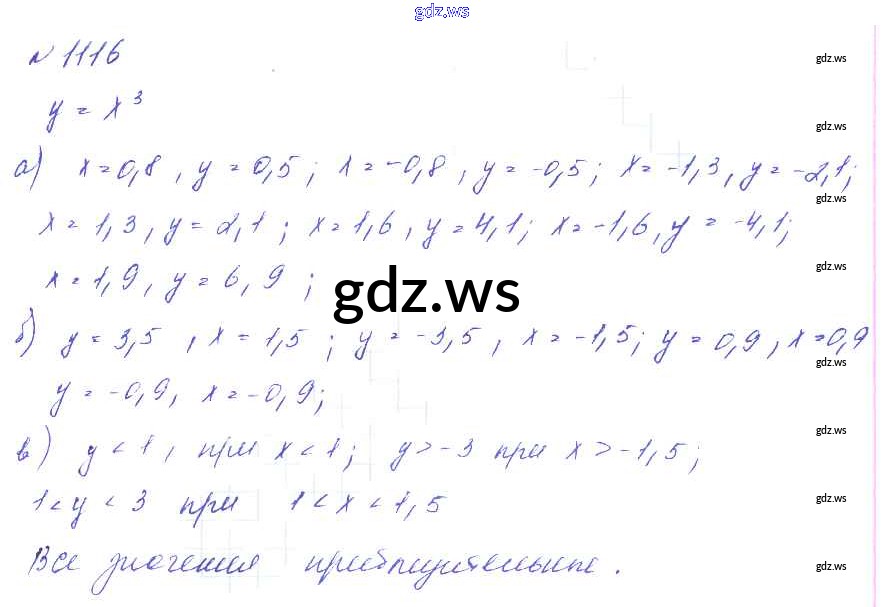 gdz.ws
№ 1116
gdz.ws
y = x³
gdz.ws
а) x = 0,8 , y = 0,5 ; x = -0,8 , y = -0,5 ; x = -1,3 , y = -2,1 ;
gdz.ws
x = 1,3 , y = 2,1 ; x = 1,6 , y = 4,1 ; x = -1,6 , y = -4,1 ;
gdz.ws
x = 1,9 , y = 6,9 ;
gdz.ws
б) y = 3,5 , x = 1,5 ; y = -3,5 , x = -1,5 ; y = 0,9 , x = 0,9
gdz.ws
y = -0,9 , x = -0,9 ;
gdz.ws
в) y < 1 , при x < 1 ; y > -3 при x > -1,5 ;
gdz.ws
1 < y < 3 при 1 < x < 1,5
Все значения приблизительные .
gdz.ws